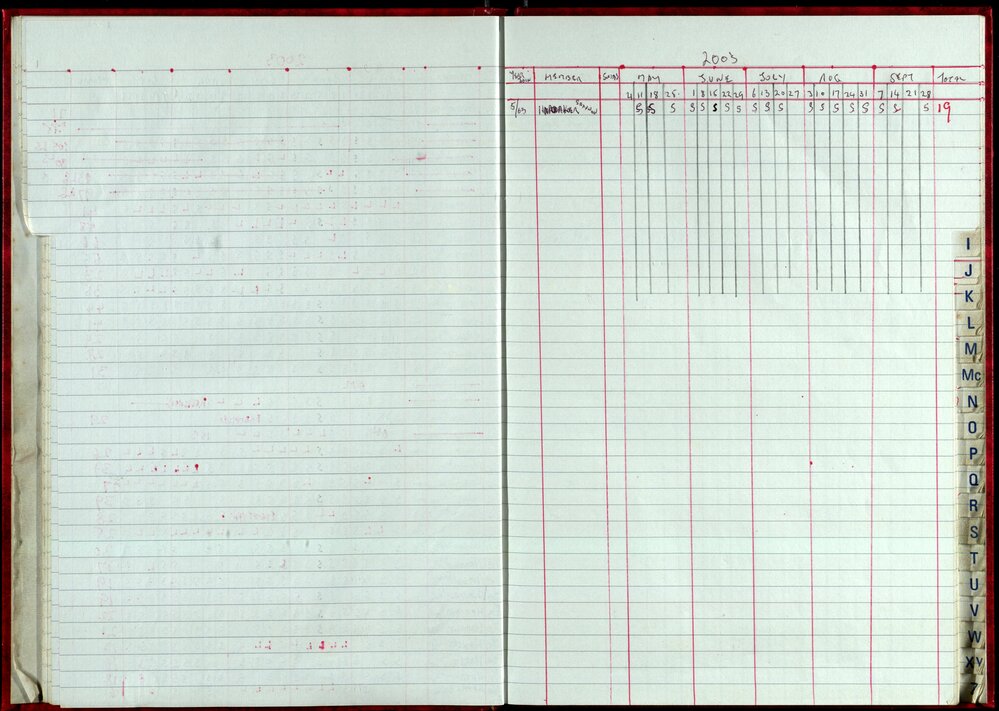 2003
YEAR JOIN MEMBER SWIM MAY JUNE JULY AUG SEPT TOTAL
4 11 18 25 1 8 15 22 29 6 13 20 27 3 10 17 24 31 7 14 21 28
5/03 S S S S S S S S S S S S S S S S S S S 19
I
J
K
L
M
Mc
N
O
P
Q
R
S
T
U
V
W
XY
Z